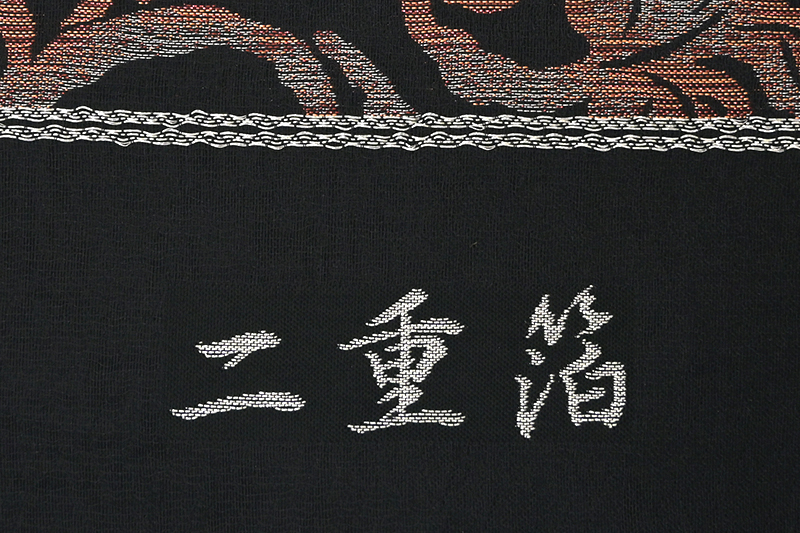 二重箔